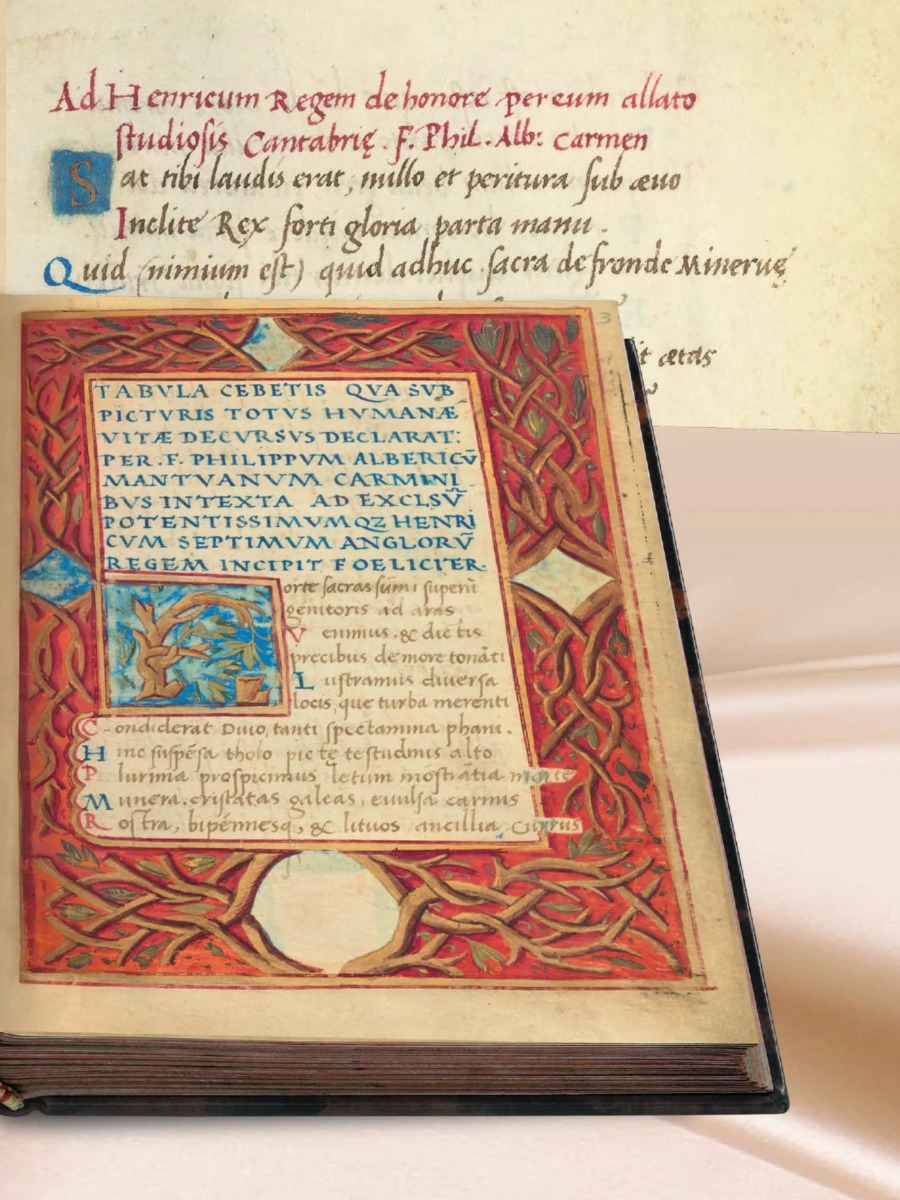 Ad Henricum Regem de honore per eum allato
studiosis Cantabrię. F. Phil. Alb: Carmen
Sat tibi laudis erat, nullo et peritura sub ævo
Inclite Rex forti gloria parta manu.
Quid (nimium est) quid adhuc sacra de fronde Minervę
it ætas
3
TABVLA CEBETIS QVA SVB
PICTVRIS TOTVS HVMANÆ
VITÆ DECVRSVS DECLARAT:
PER .F. PHILIPPVM ALBERICŪ
MANTVANVM CARMINI
BVS INTEXTA AD EXCLSŪ
POTENTISSIMVMQZ HENRI
CVM SEPTIMVM ANGLORŪ
REGEM INCIPIT FOELICIER.
orte sacras sūmi superū
genitoris ad aras
Venimus. & dictis
precibus de more tonāti
Lustramus diversa
locis, que turba merenti
Condiderat Divo, tanti spectamina phani.
Hinc suspēsa tholo picte testudinis alto
Plurima prospicimus letum mostrātia morte
Munera. cristatas galeas, evulsa carinis
Rostra, bipēnnesq, & lituos ancillia currus